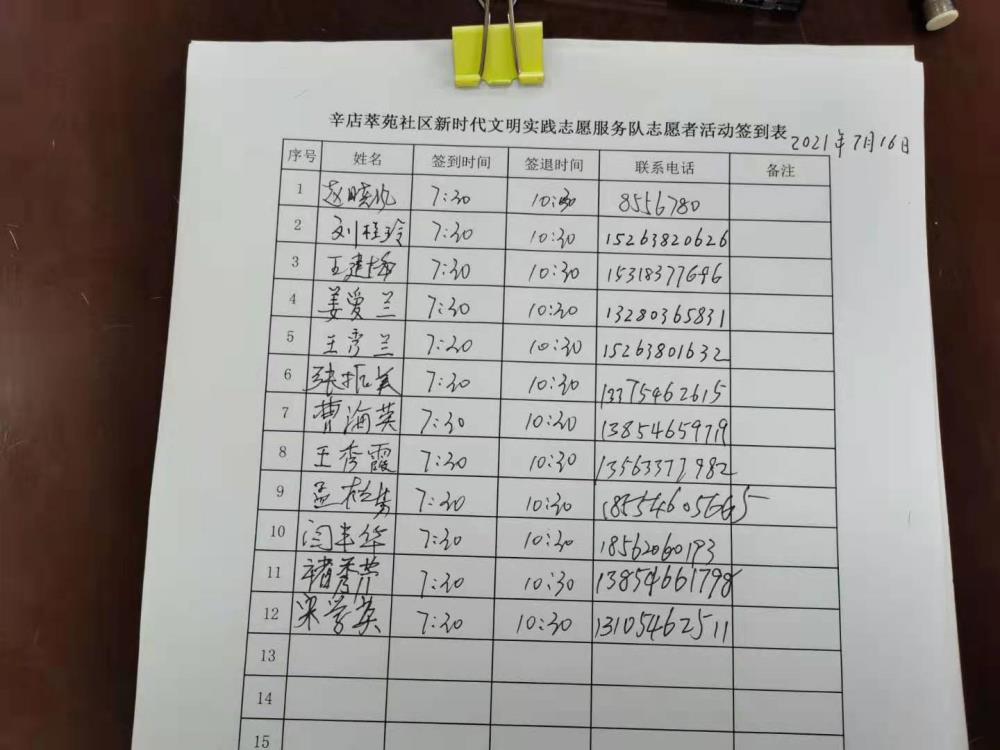 辛店萃苑社区新时代文明实践志愿服务队志愿者活动签到表
2021年7月16日
序号 姓名 签到时间 签退时间 联系电话 备注
1 赵晓 7:30 10:30 8556780
2 刘桂玲 7:30 10:30 15263820626
3 王建梅 7:30 10:30 15318377696
4 姜爱兰 7:30 10:30 13280365831
5 王秀兰 7:30 10:30 15263801632
6 张振美 7:30 10:30 13375462615
7 曹海英 7:30 10:30 13854659719
8 王秀霞 7:30 10:30 13563377982
9 孟桂芳 7:30 10:30 18554605665
10 闫丰华 7:30 10:30 18562060193
11 褚秀兰 7:30 10:30 13854661798
12 宋学英 7:30 10:30 13105462511
13
14
15